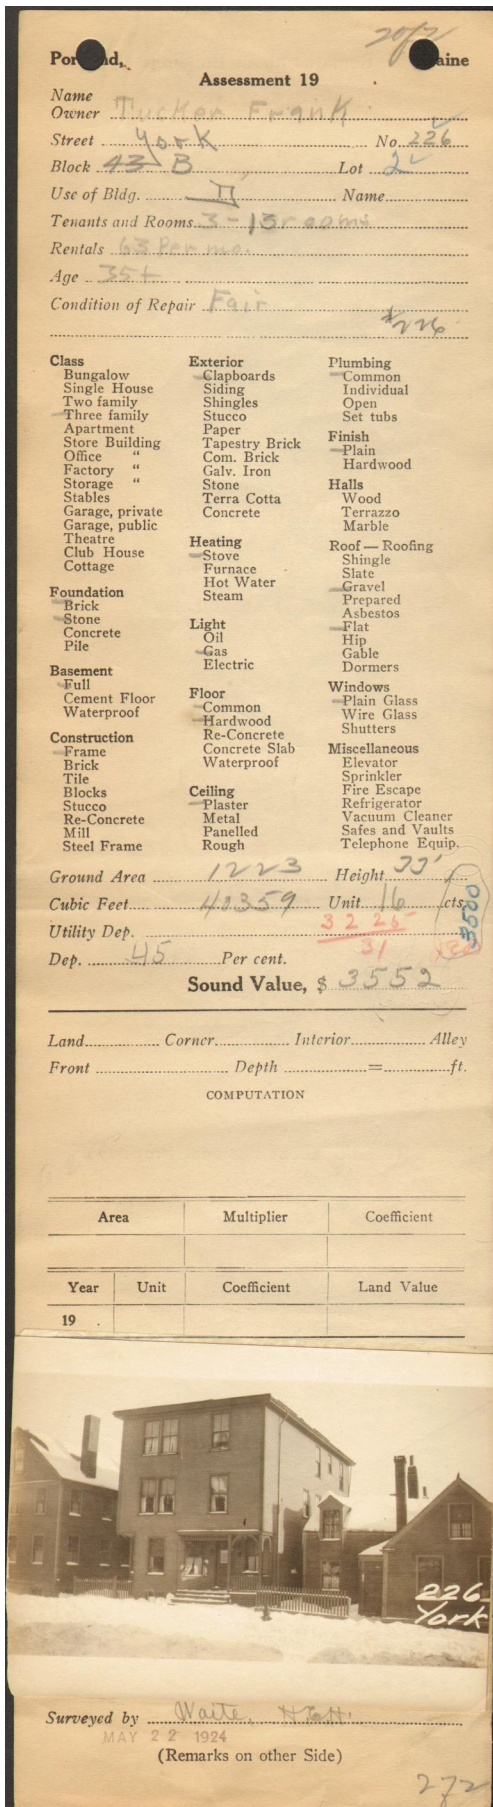 2 of 2
Portland, Maine
Assessment 19
Name
Owner Tucker Frank
Street York No. 226
Block 43 B Lot 2
Use of Bldg. D Name
Tenants and Rooms 3 - 13 rooms
Rentals 63 Per mo.
Age 35+
Condition of Repair Fair
#226
Class
Bungalow
Single House
Two family
Three family
Apartment
Store Building
Office "
Factory "
Storage "
Stables
Garage, private
Garage, public
Theatre
Club House
Cottage
Foundation
Brick
Stone
Concrete
Pile
Basement
Full
Cement Floor
Waterproof
Construction
Frame
Brick
Tile
Blocks
Stucco
Re-Concrete
Mill
Steel Frame
Exterior
Clapboards
Siding
Shingles
Stucco
Paper
Tapestry Brick
Com. Brick
Galv. Iron
Stone
Terra Cotta
Concrete
Heating
Stove
Furnace
Hot Water
Steam
Light
Oil
Gas
Electric
Floor
Common
Hardwood
Re-Concrete
Concrete Slab
Waterproof
Ceiling
Plaster
Metal
Panelled
Rough
Plumbing
Common
Individual
Open
Set tubs
Finish
Plain
Hardwood
Halls
Wood
Terrazzo
Marble
Roof — Roofing
Shingle
Slate
Gravel
Prepared
Asbestos
Flat
Hip
Gable
Dormers
Windows
Plain Glass
Wire Glass
Shutters
Miscellaneous
Elevator
Sprinkler
Fire Escape
Refrigerator
Vacuum Cleaner
Safes and Vaults
Telephone Equip.
Ground Area 1223 Height 33'
Cubic Feet 40359 Unit 16 cts.
3500
Utility Dep. 3225
31
Dep. 45 Per cent.
Sound Value, $ 3552
Land Corner Interior Alley
Front Depth = ft.
COMPUTATION
Area Multiplier Coefficient
Year Unit Coefficient Land Value
19
226
York
Surveyed by Waite, H.E.H.
MAY 22 1924
(Remarks on other Side)
272